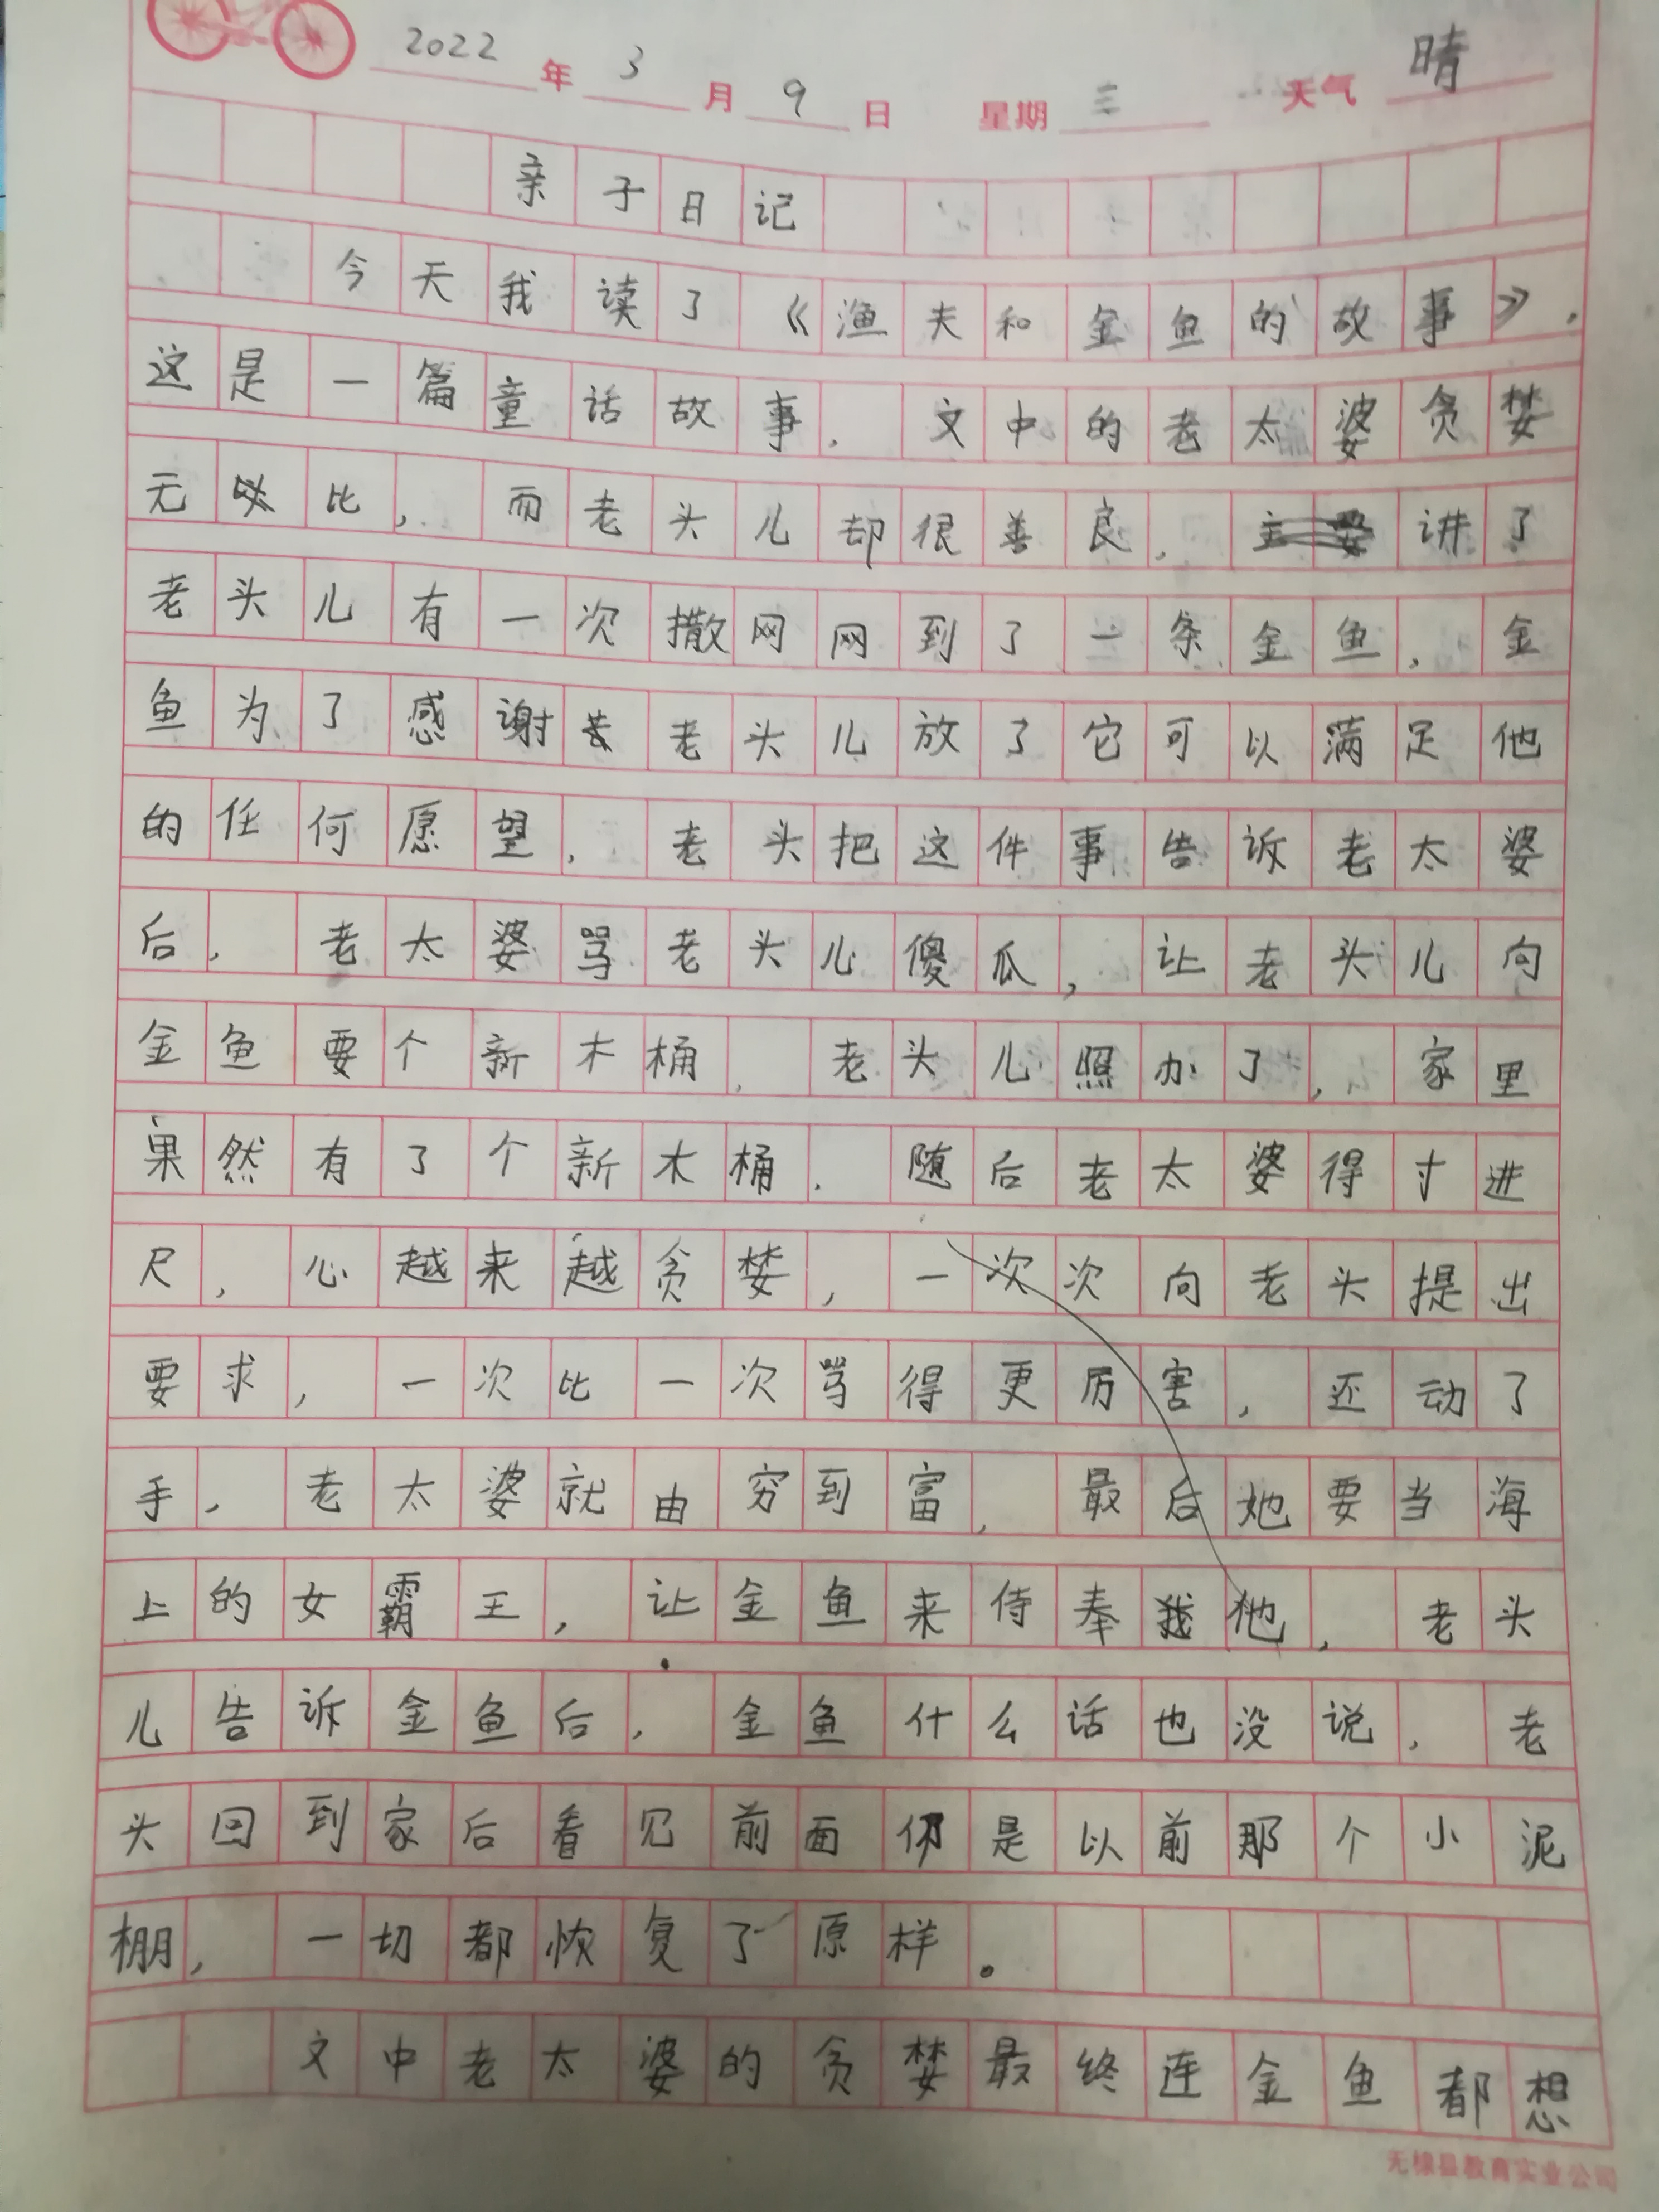 2022年3月9日 星期三 天气晴
亲子日记
今天我读了《渔夫和金鱼的故事》.
这是一篇童话故事. 文中的老太婆贪婪
无比, 而老头儿却很善良, 讲了
老头儿有一次撒网网到了一条金鱼, 金
鱼为了感谢老头儿放了它可以满足他
的任何愿望, 老头把这件事告诉老太婆
后, 老太婆骂老头儿傻瓜, 让老头儿向
金鱼要个新木桶, 老头儿照办了, 家里
果然有了个新木桶. 随后老太婆得寸进
尺, 心越来越贪婪, 一次次向老头提出
要求, 一次比一次骂得更厉害, 还动了
手, 老太婆就由穷到富, 最后她要当海
上的女霸王, 让金鱼来侍奉他, 老头
儿告诉金鱼后, 金鱼什么话也没说, 老
头回到家后看见前面仍是以前那个小泥
棚, 一切都恢复了原样。
文中老太婆的贪婪最终连金鱼都想
无棣县教育实业公司